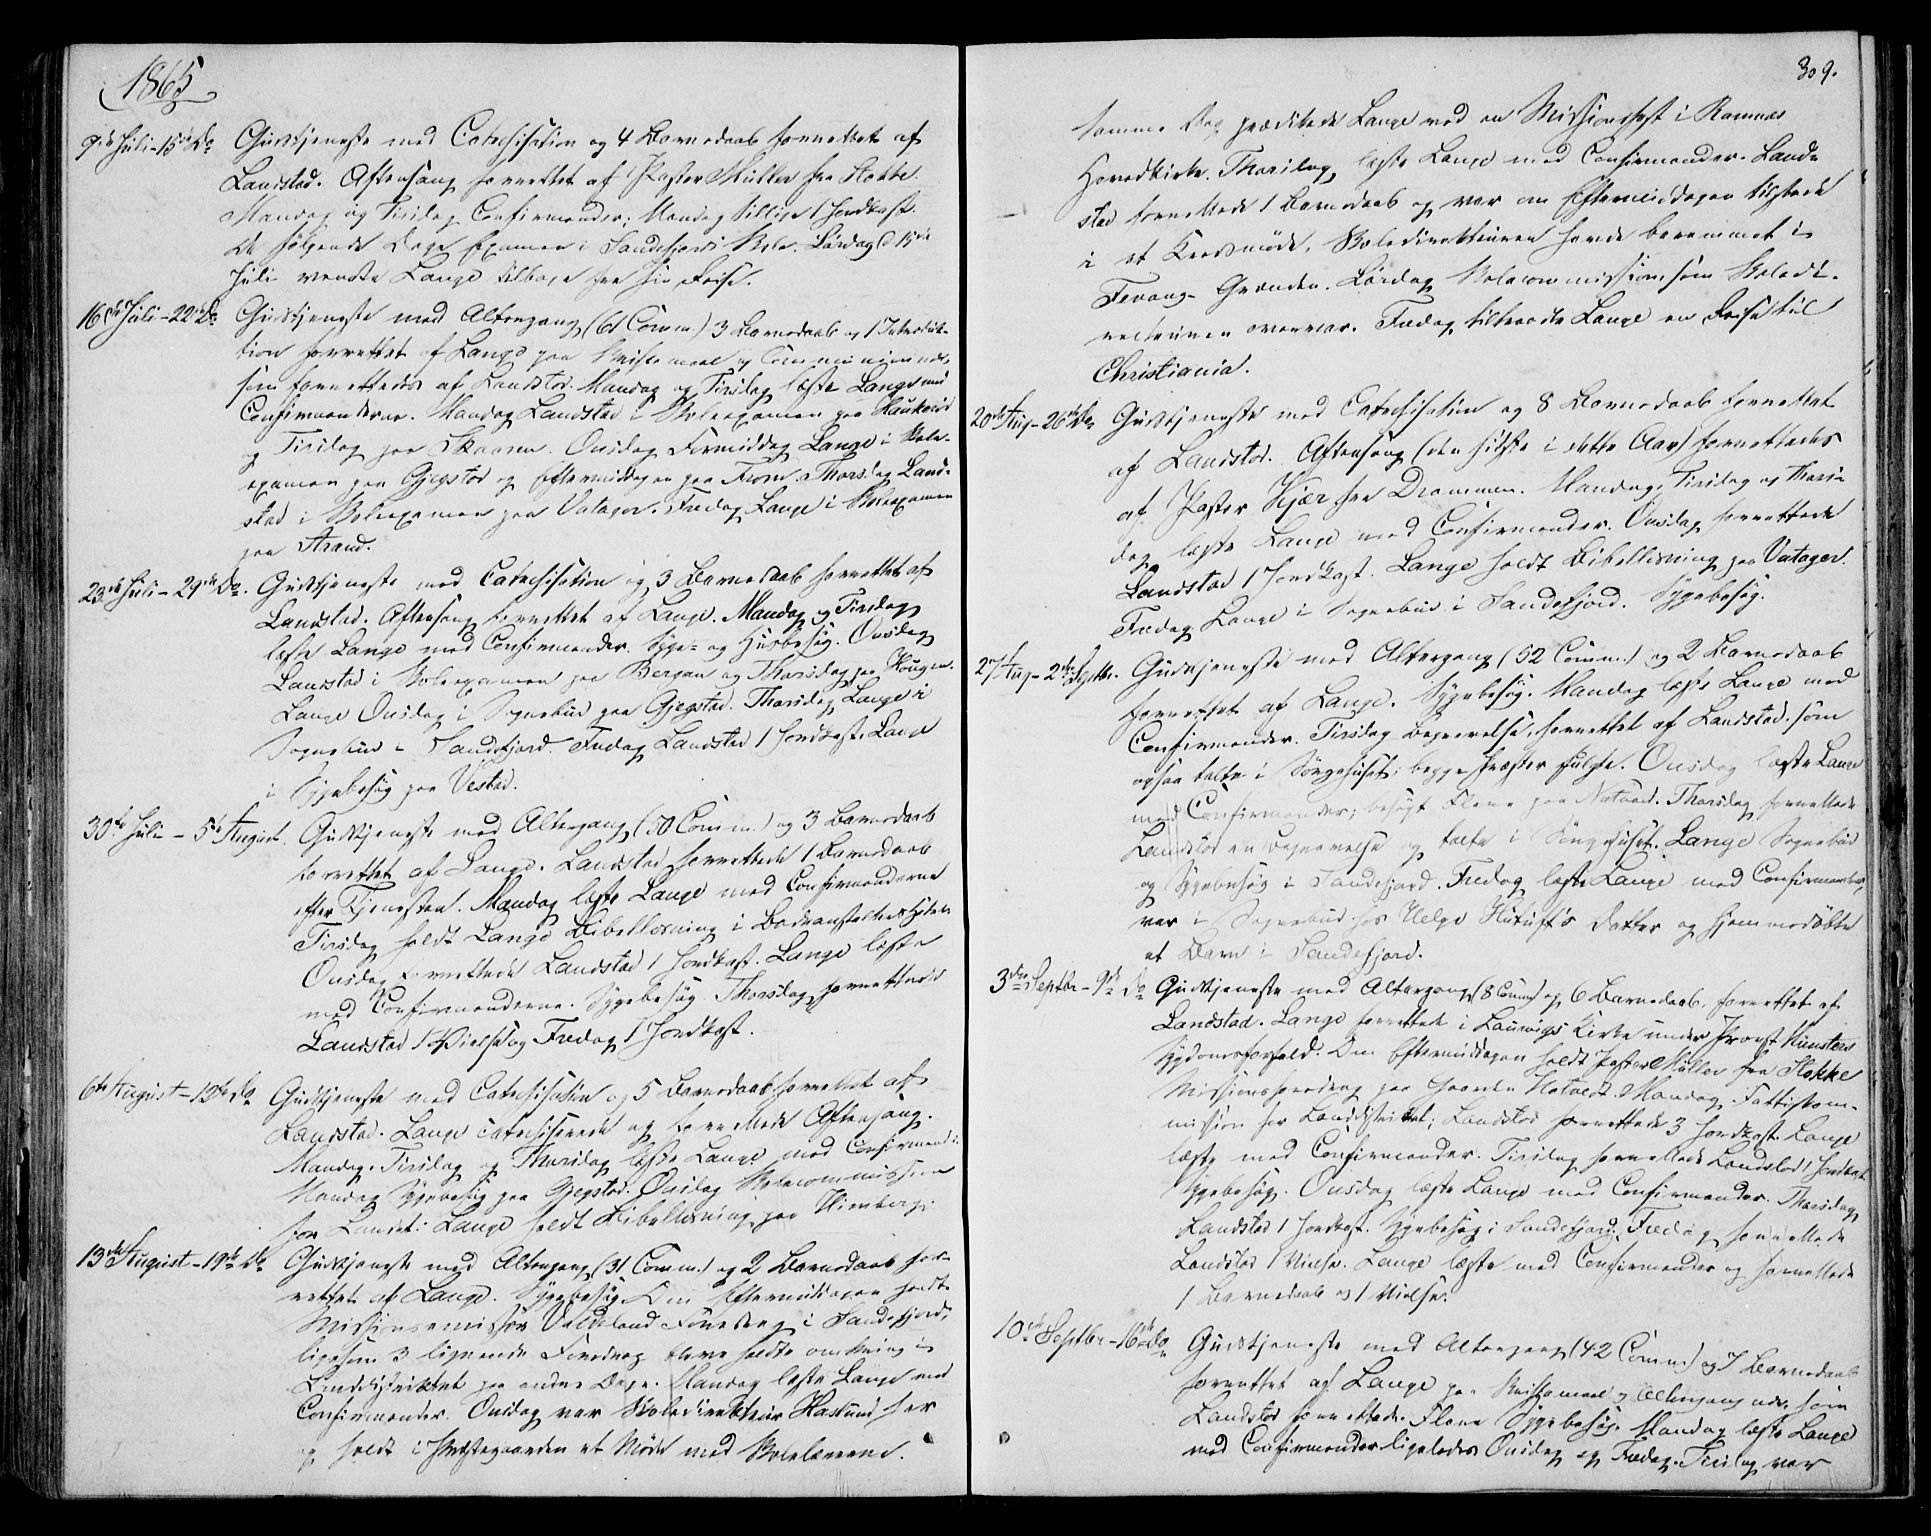 1865
9de Juli-15de Do Gudstjeneste med Catechisation og 4 Barnedaab forrettet af
Landstad. Aftensang forrettet af Pastor Müller fra Stokke.
Mandag og Tirsdag Confirmander; Mandag tillige 1 Jordkast.
De følgende Dage Examen i Sandefjords Skole. Lørdag d 15de
Juli vendte Lange tilbage fra sin Reise.
16de Juli-22de Do Gudstjeneste med Altergang (61 Comm) 3 Barnedaab og 1 Introduk-
tion forrettet af Lange paa Skriftemaal og Communionen nær
som forrettedes af Landstad. Mandag og Tirsdag læste Lange med
Confirmanderne. Mandag Landstad i Skoleexamen paa Haukerød
og Tirsdag paa Skaaren. Onsdag Formiddag Lange i Skole-
examen paa Gjegstad og Eftermiddagen paa From. Thorsdag Land-
stad i Skoleexamen paa Vatager. Fredag Lange i Skoleexamen
paa Strand.
23de Juli-29de Do. Gudstjeneste med Catechisation og 3 Barnedaab forrettet af
Landstad. Aftensang forrettet af Lange. Mandag og Tirsdag
læste Lange med Confirmander. Syge- og Husbesøg. Onsdag
Landstad i Skoleexamen paa Bergan og Thorsdag paa Hougen.
Lange Onsdag i Sognebud paa Gjegstad. Thorsdag Lange i
Sognebud i Sandefjord. Fredag Landstad 1 Jordkast. Lange
i Sygebesøg paa Vestad.
30te Juli - 5te August. Gudstjeneste med Altergang (50 Comm.) og 3 Barnedaab
forrettet af Lange. Landstad forrettede 1 Barnedaab
efter Tjenesten. Mandag læste Lange med Confirmanderne
Tirsdag holdt Lange Bibellæsning i Badeanstaltens
Onsdag forrettede Landstad 1 Jordkast. Lange læste
med Confirmanderne. Sygebesøg. Thorsdag forrettede
Landstad 1 Vielse og Fredag 1 Jordkast.
6te August-12te Do Gudstjeneste med Catechisation og 5 Barnedaab forrettet af
Landstad. Lange catechiserede og forrettede Aftensang.
Mandag, Tirsdag og Thorsdag læste Lange med Confirmand:
Mandag Sygebesøg paa Gjegstad. Onsdag Skolecommission
for Landet: Lange holdt Bibellæsning paa Himberg.
13de August-19de Do Gudstjeneste med Altergang (31 Comm.) og 2 Barnedaab for-
rettet af Lange. Sygebesøg. Om Eftermiddagen holdt
Missionsemissær Valdeland Foredrag i Sandefjord,
ligesom 3 lignende Foredrag bleve holdte omkring i
Landdistriktet paa andre Dage. Mandag læste Lange med
Confirmander. Onsdag var Skoledirekteur Haslund her
og holdt i Præstegaarden et Møde med Skolelærerne.
309.
Samme Dag prædikede Lange ved en Missionsfest i Ramnes
Hovedkirke. Thorsdag læste Lange med Confirmander. Land-
stad forrettede 1 Barnedaab og var om Eftermiddagen tilstede
i et Kredsmøde, Skoledirekteuren havde berammet i
Fevang-Grænden. Lørdag Skolecommission, som Skoledi-
recteuren overvar. Fredag tiltraadte Lange en Reise til
Christiania.
20de Aug-26de Do Gudstjeneste med Catechisation og 8 Barnedaab forrettet
af Landstad. Aftensang (den sidste i dette Aar) forrettedes
af Pastor Kjær fra Drammen. Mandag, Tirsdag og Thors-
dag læste Lange med Confirmander. Onsdag forrettede
Landstad 1 Jordkast. Lange holdt Bibellæsning paa Vatager.
Fredag Lange i Sognebud i Sandefjord. Sygebesøg.
27 Aug-2den Septbr. Gudstjeneste med Altergang (52 Comm.) og 2 Barnedaab
forrettet af Lange. Sygebesøg. Mandag læste Lange med
Confirmander. Tirsdag Begravelse, forrettet af Landstad, som
ogsaa talte i Sørgehuset; begge Præster fulgte. Onsdag læste Lange
med Confirmander; besøgt Flere paa Natvad. Thorsdag forrettede
Landstad en Begravelse og talte i Sørgehuset. Lange Sognebud
og Sygebesøg i Sandefjord. Fredag læste Lange med Confirmander,
var i Sognebud hos Helge Datter og hjemmedøbte
et Barn i Sandefjord.
3die Septbr-9de Do Gudstjeneste med Altergang (8 Comm) og 6 Barnedaab, forrettet af
Landstad. Lange forrettede i Laurvigs Kirke under Provst Münsters
Sygdomsforfald. Om Eftermiddagen holdt Pastor Müller fra Stokke
Missionsforedrag paa Gaarden Natvedt. Mandag Fattigkom-
mission for Landdistriktet; Landstad forrettede 3 Jordkast. Lange
læste med Confirmander. Tirsdag forrettede Landstad 1 Jordkast
Sygebesøg. Onsdag læste Lange med Confirmander. Thorsdag
Landstad 1 Jordkast. Sygebesøg i Sandefjord. Fredag forrettede
Landstad 1 Vielse. Lange læste med Confirmander og forrettede
1 Barnedaab og 1 Vielse.
10de Septbr-16de Do Gudstjeneste med Altergang (42 Comm) og 7 Barnedaab
forrettet af Lange paa Skriftemaal og Altergang nær, som
Landstad forrettede. Flere Sygebesøg. Mandag læste Lange
med Confirmander ligeledes Onsdag og Fredag. Tirsdag var